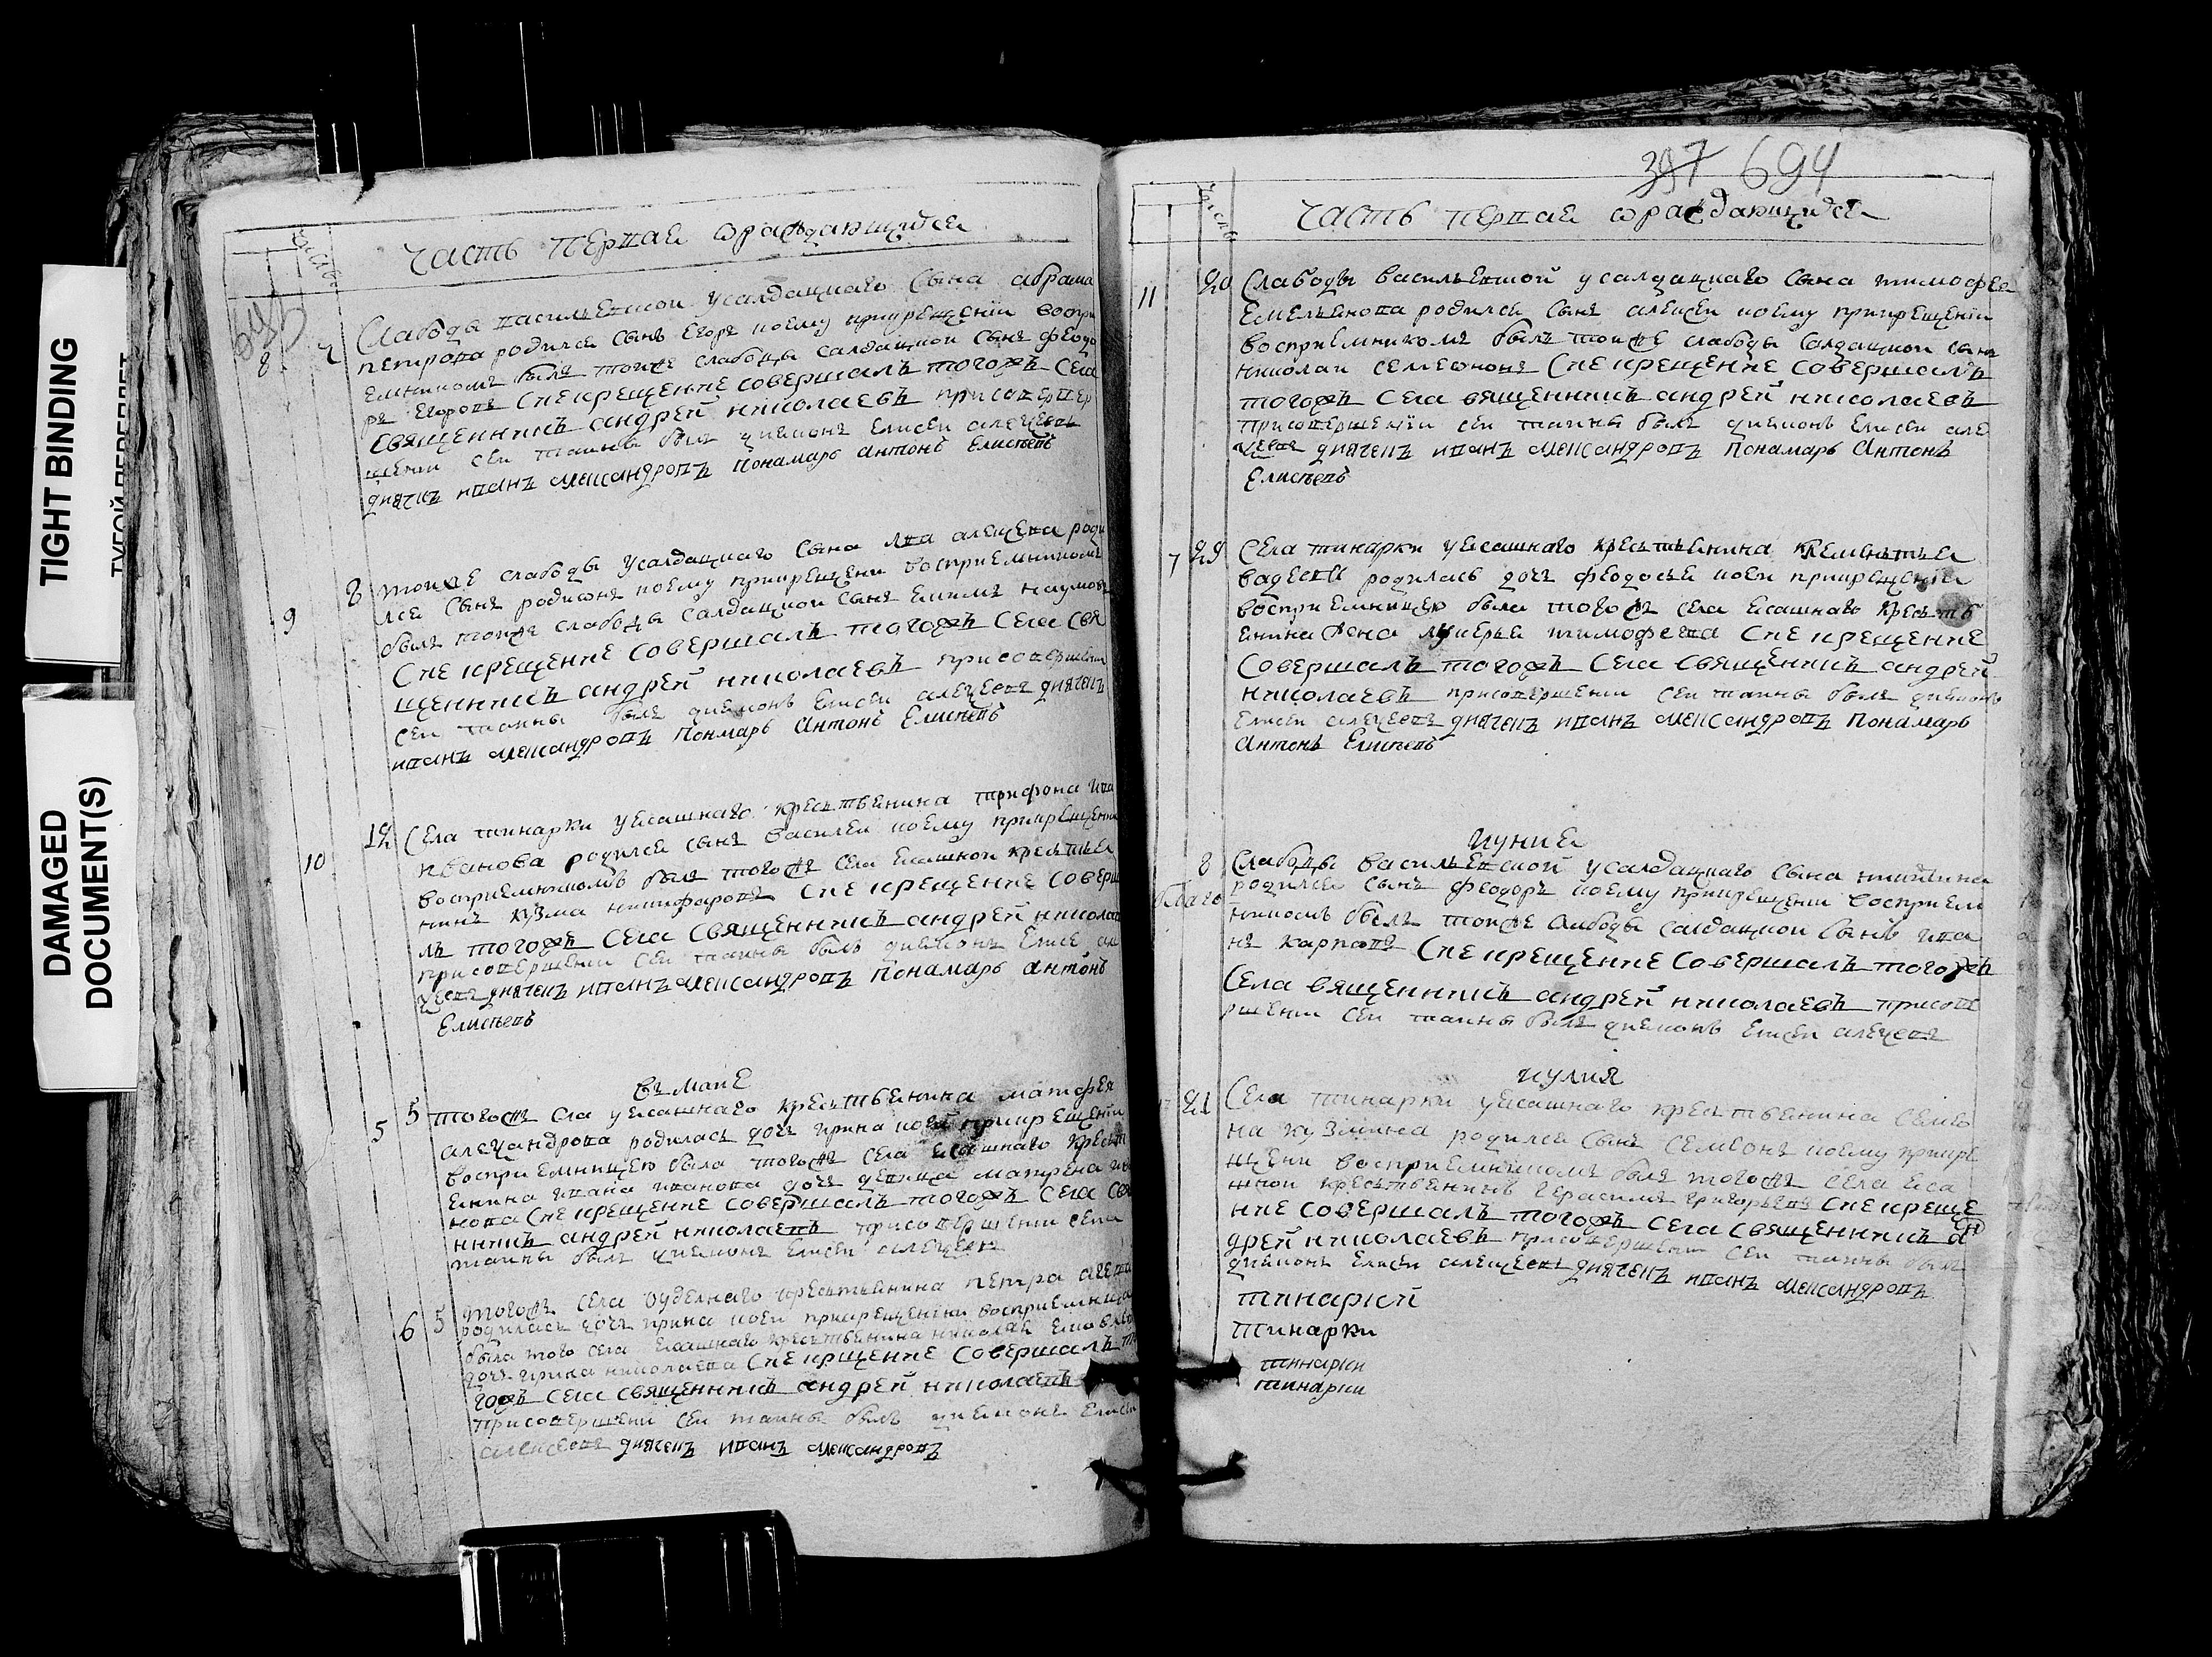 TIGHT BINDING
ТУГОЙ ПЕРЕПЛЕТ
DAMAGED
DOCUMENT(S)
часть первая ѡраждающихся
8
Слабоды васильевской усалдацкаго сына абрама
петрова родился сынъ Егоръ коему прикрещении воспри
емникомъ былъ тоиже слабоды салдацкой сынъ феодо
ръ Егоровъ Сие крещение совершалъ тогожъ Села
священникъ андрей николаевъ присовершер
шении сеи таины былъ диаконъ Елисеи алеѯеевъ
диячекъ иванъ александровъ понамарь антонъ Елисѣевъ
9 8 тоиже слабоды усалдацкаго сына лва алеѯеева роди
лся сынъ родиѡнъ коему прикрещени восприемникомъ
былъ тоиже слабоды салдацкой сынъ наумовъ
Сие крещение совершалъ тогожъ Села Свя
щенникъ андрей николаевъ присовершени
сеи таины былъ диаконъ Елисеи алеѯеевъ диячекъ
иванъ александровъ понмарь антонъ Елисѣевъ
10 12 Села тинарки уясашнаго крестьвенина трифона ива
иванова родился сынъ василеи коему прикрещении
восприемникомъ былъ тогожъ села ясашной крестьвея
нинъ кузма никифаровъ Сие крещение соверш
лъ тогожъ Села Священникъ андрей никола
присовершении сеи таины былъ диаконъ Елисе ал
ѯеевъ диячекъ иванъ александровъ понамарь антонъ
Елисѣевъ
въ Маие
5 5 тогожъ Сла уясашнаго крестьвенина матфея
алеѯандрова родилась дочь ирина коей прикрещении
восприемницею была тогожъ села ясашнаго крестьв
енина ивана иванова дочь девица матрена ива
нова Сие крещение совершалъ тогожъ Села Свя
нникъ андрей николаевъ присовершении сеи
таины былъ диаконъ Елисеи алеѯеевъ
6 5 тогожъ села уделнаго крестьвенина петра
родилась дочь ирина коеи прикрещении восприемница
была того села ясашнаго крестьвенина николая
дочь ирина николаева Сие крщение совершалъ то
гожъ Села священникъ андрей николаевъ
присовершени сеи таины былъ диаконъ Елисеи
алеѯеевъ диячекъ иванъ александровъ
397 694
часть первая ѡраждающихся
11 20 Слабоды васильевской усалдацкаго сына тимофея
Емельянова родился сынъ алеѯеи коему прикрещении
восприемникомъ былъ тоиже слабоды салдацкой сынъ
николаи семеѡновъ Сие крещение совершалъ
тогожъ Села вященникъ андрей николаевъ
присовершении сеи таины былъ диаконъ Елисеи але
ѯеевъ диячекъ иванъ александровъ понамарь антонъ
Елисѣевъ
7 29 Села тинарки уясашнаго крестьвенина
родилась дочь феодосья коеи прикрещении
восприемницею была тогожъ села ясашнаго крестьв
енина жена лукерья тимофеева Сие крещение
совершалъ тогожъ Села священникъ андрей
николаевъ присовершении сеи таины былъ диаконъ
Елисеи алеѯеевъ диячекъ иванъ александровъ понамарь
антонъ Елисѣевъ
Иуния
8 Слабоды васильевской усалдацкаго сына никитина
родился сынъ феодоръ коему прикрещении восприем
никомъ былъ тоиже слабоды салдацкой сынъ ива
нъ карповъ Сие крещение совершалъ тогожъ
Села вященникъ андрей николаевъ присове
ршении сеи таины былъ диаконъ Елисеи алеѯеевъ
Иулия
21 Села тинарки уясашнаго крестьвенина семео
на кузмина родился сынъ семеонъ коему прикре
щени восприемникомъ былъ тогожъ села яса
шной крестьвенинъ герасимъ григорьевъ Сие креще
ние совершалъ тогожъ Села священникъ ан
дрей николаевъ присовершении сеи таины былъ
диаконъ Елисеи алеѯеевъ диячекъ иванъ александровъ
тинаркй
тинарки
тинарки
тинарки